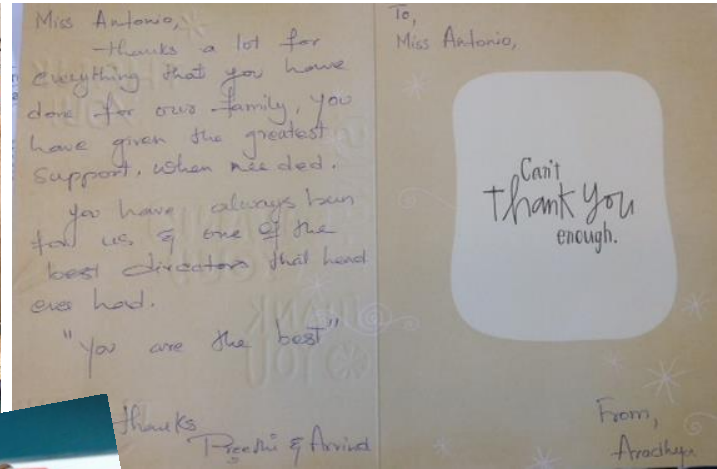 Miss Antonio,
thanks a lot for
everything that you have
done for our family, you
have given the greatest
support, when needed.
you have always been
for us & one of the
best directors that head
ever had.
"you are the best"
thanks
Preethi & Arvind
To,
Miss Antonio,
Can't
thank you
enough.
From,
Aradhya